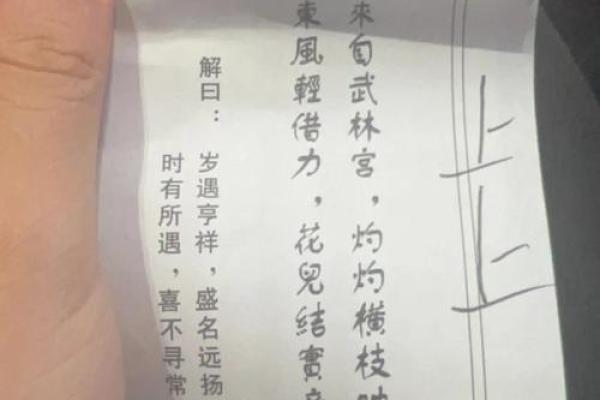 上上
來自武林宮，灼灼橫枝
東風輕借力，花兒結實
解曰：
岁遇亨祥，盛名远扬
时有所遇，喜不寻常